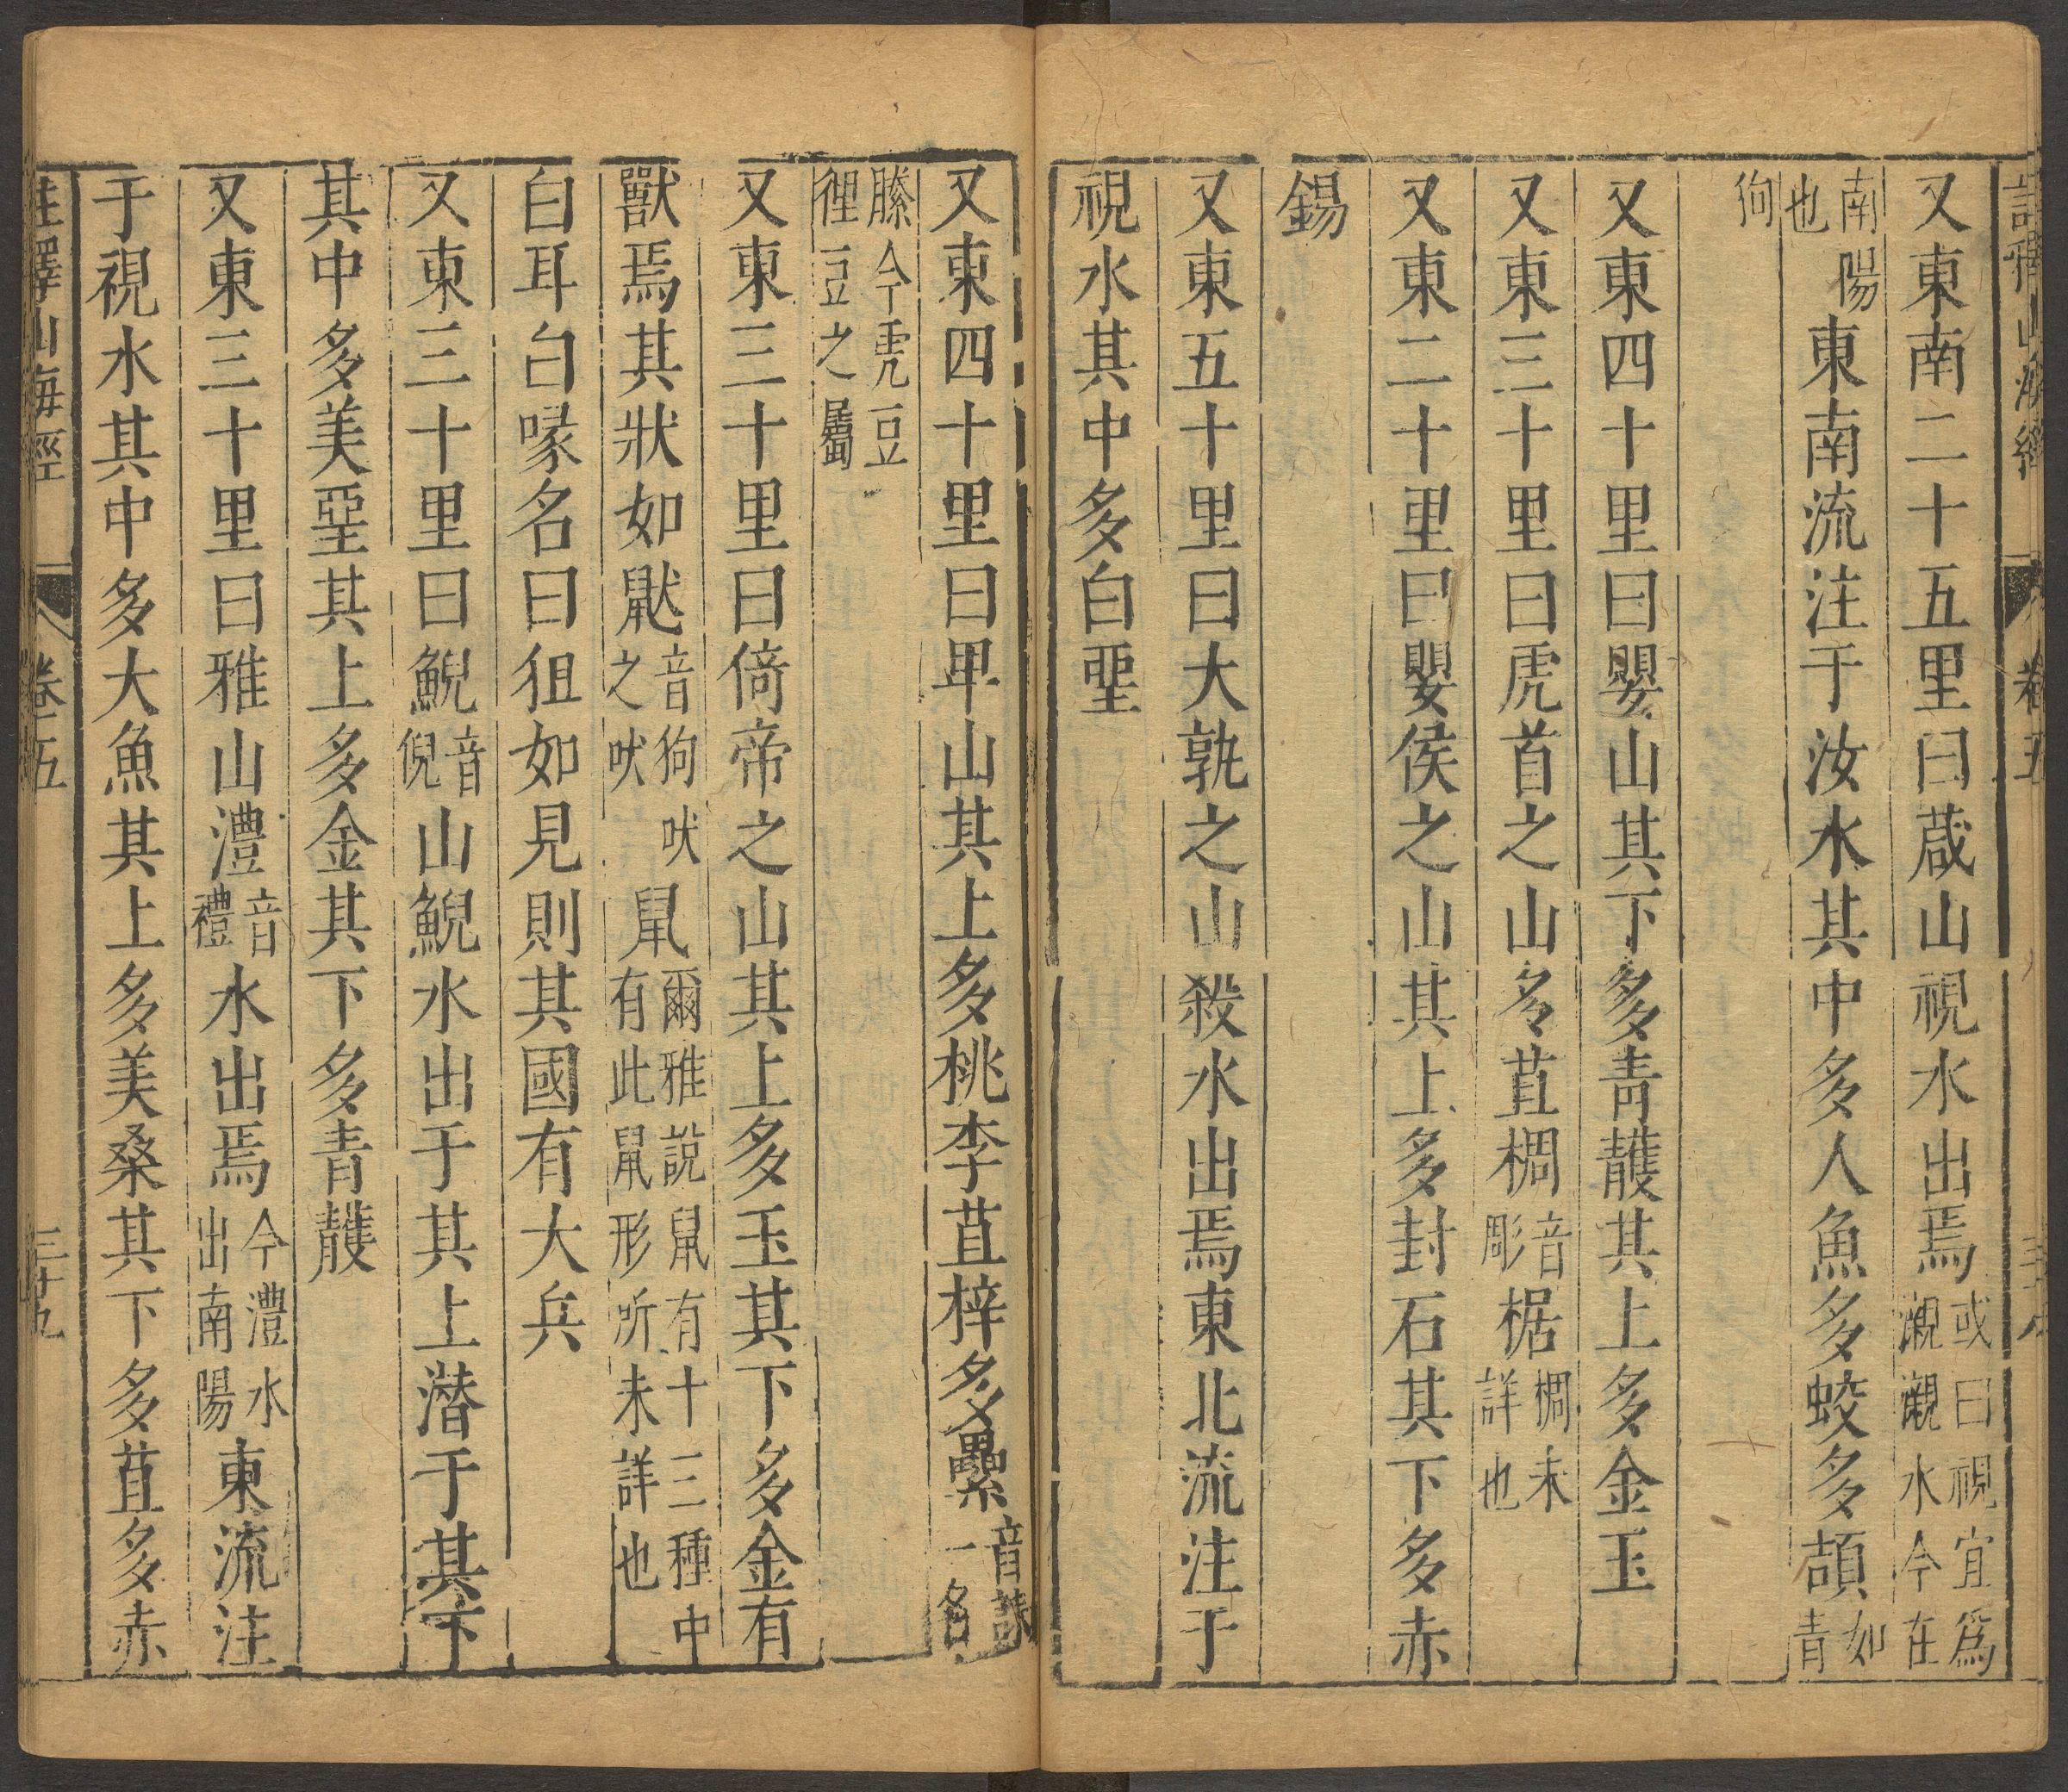 註釋山海經 卷五 三十八
又東南二十五里曰葴山視水出焉或曰視宜爲瀙瀙水今在
南陽也東南流注于汝水其中多人魚多蛟多頡如青
狗
又東四十里曰嬰山其下多青雘其上多金玉
又東三十里曰虎首之山多苴椆音彫椐椆未詳也
又東二十里曰嬰侯之山其上多封石其下多赤
錫
又東五十里曰大孰之山殺水出焉東北流注于
視水其中多白堊
又東四十里曰卑山其上多桃李苴梓多纍音誄一名
縢今虎豆狸豆之屬
又東三十里曰倚帝之山其上多玉其下多金有
獸焉其狀如鼣音狗吠之吠鼠爾雅說鼠有十三種中有此鼠形所未詳也
白耳白喙名曰狙如見則其國有大兵
又東三十里曰鯢音倪山鯢水出于其上潛于其下
其中多美堊其上多金其下多青雘
又東三十里曰雅山澧音禮水出焉今澧水出南陽東流注
于視水其中多大魚其上多美桑其下多苴多赤
註釋山海經 卷五 三十九